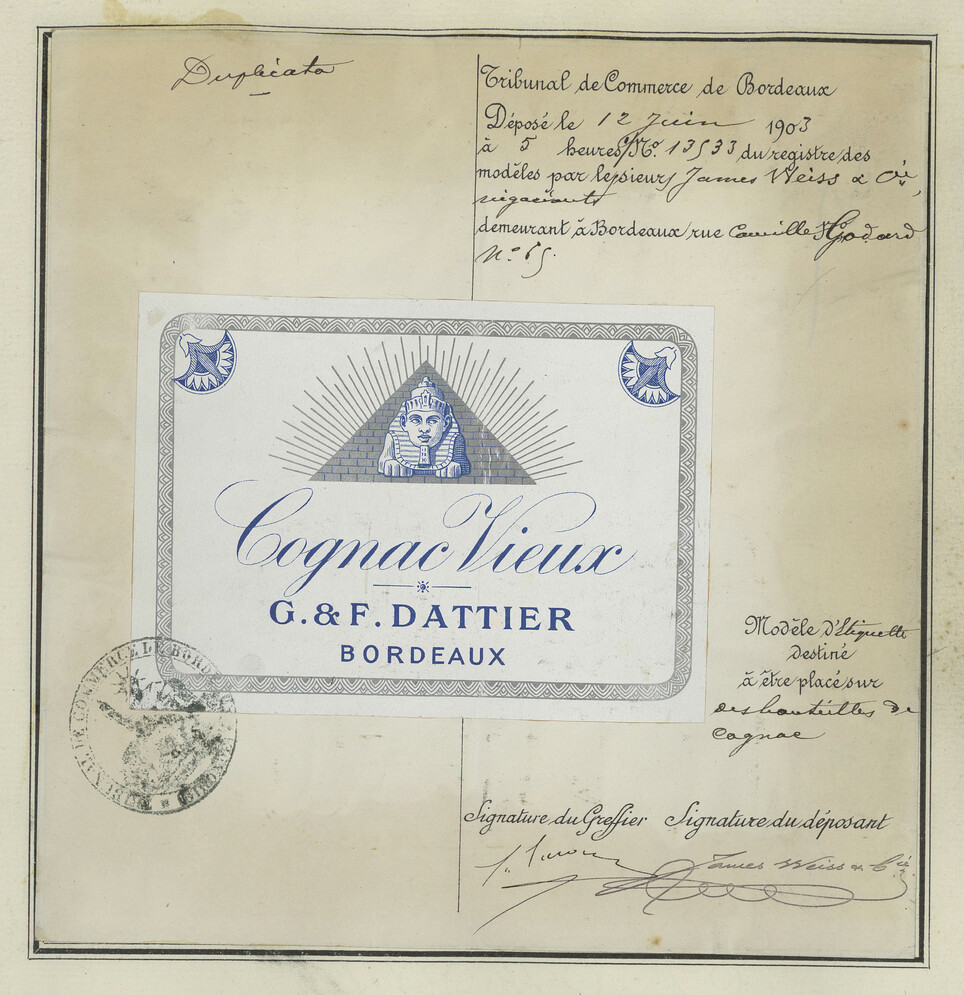 Duplicata
Tribunal de Commerce de Bordeaux
Déposé le 12 Juin 1903
à 5 heures N.º 13533 du registre des
modèles par le sieurs James Weiss & Cie,
négociants
demeurant à Bordeaux rue Camille Godard
Nº 65.
Cognac Vieux
G. & F. DATTIER
BORDEAUX
TRIBUNAL DE COMMERCE DE BORDEAUX
Modèle d'Etiquette
destiné
à être placé sur
des bouteilles de
Cognac
Signature du Greffier Signature du déposant
James Weiss & Cie